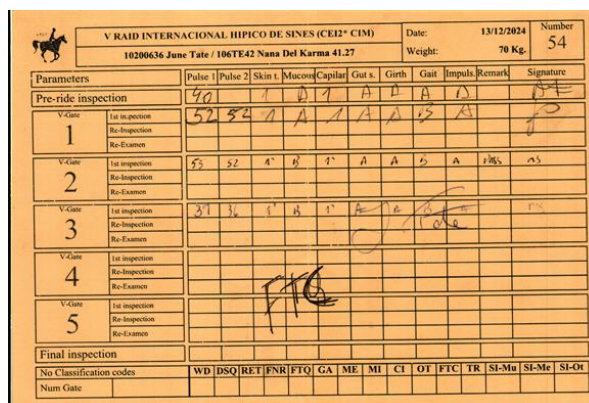 V RAID INTERNACIONAL HIPICO DE SINES (CEI2* CIM) Date: 13/12/2024 Number
10200636 June Tate / 106TE42 Nana Del Karma 41.27 Weight: 70 Kg. 54
Parameters Pulse 1 Pulse 2 Skin t. Mucous Capilar Gut s. Girth Gait Impuls. Remark Signature
Pre-ride inspection 40 1 A 1 A A A A
V-Gate 1st inspection 52 52 1 A 1 A A B A
1 Re-Inspection
Re-Examen
V-Gate 1st inspection 55 52 1" B 1" A A B A
2 Re-Inspection
Re-Examen
V-Gate 1st inspection 37 36 1" B 1" A A B A
3 Re-Inspection
Re-Examen
V-Gate 1st inspection
4 Re-Inspection
Re-Examen
V-Gate 1st inspection
5 Re-Inspection
Re-Examen
Final inspection
No Classification codes WD DSQ RET FNR FTQ GA ME MI CI OT FTC TR SI-Mu SI-Me SI-Ot
Num Gate